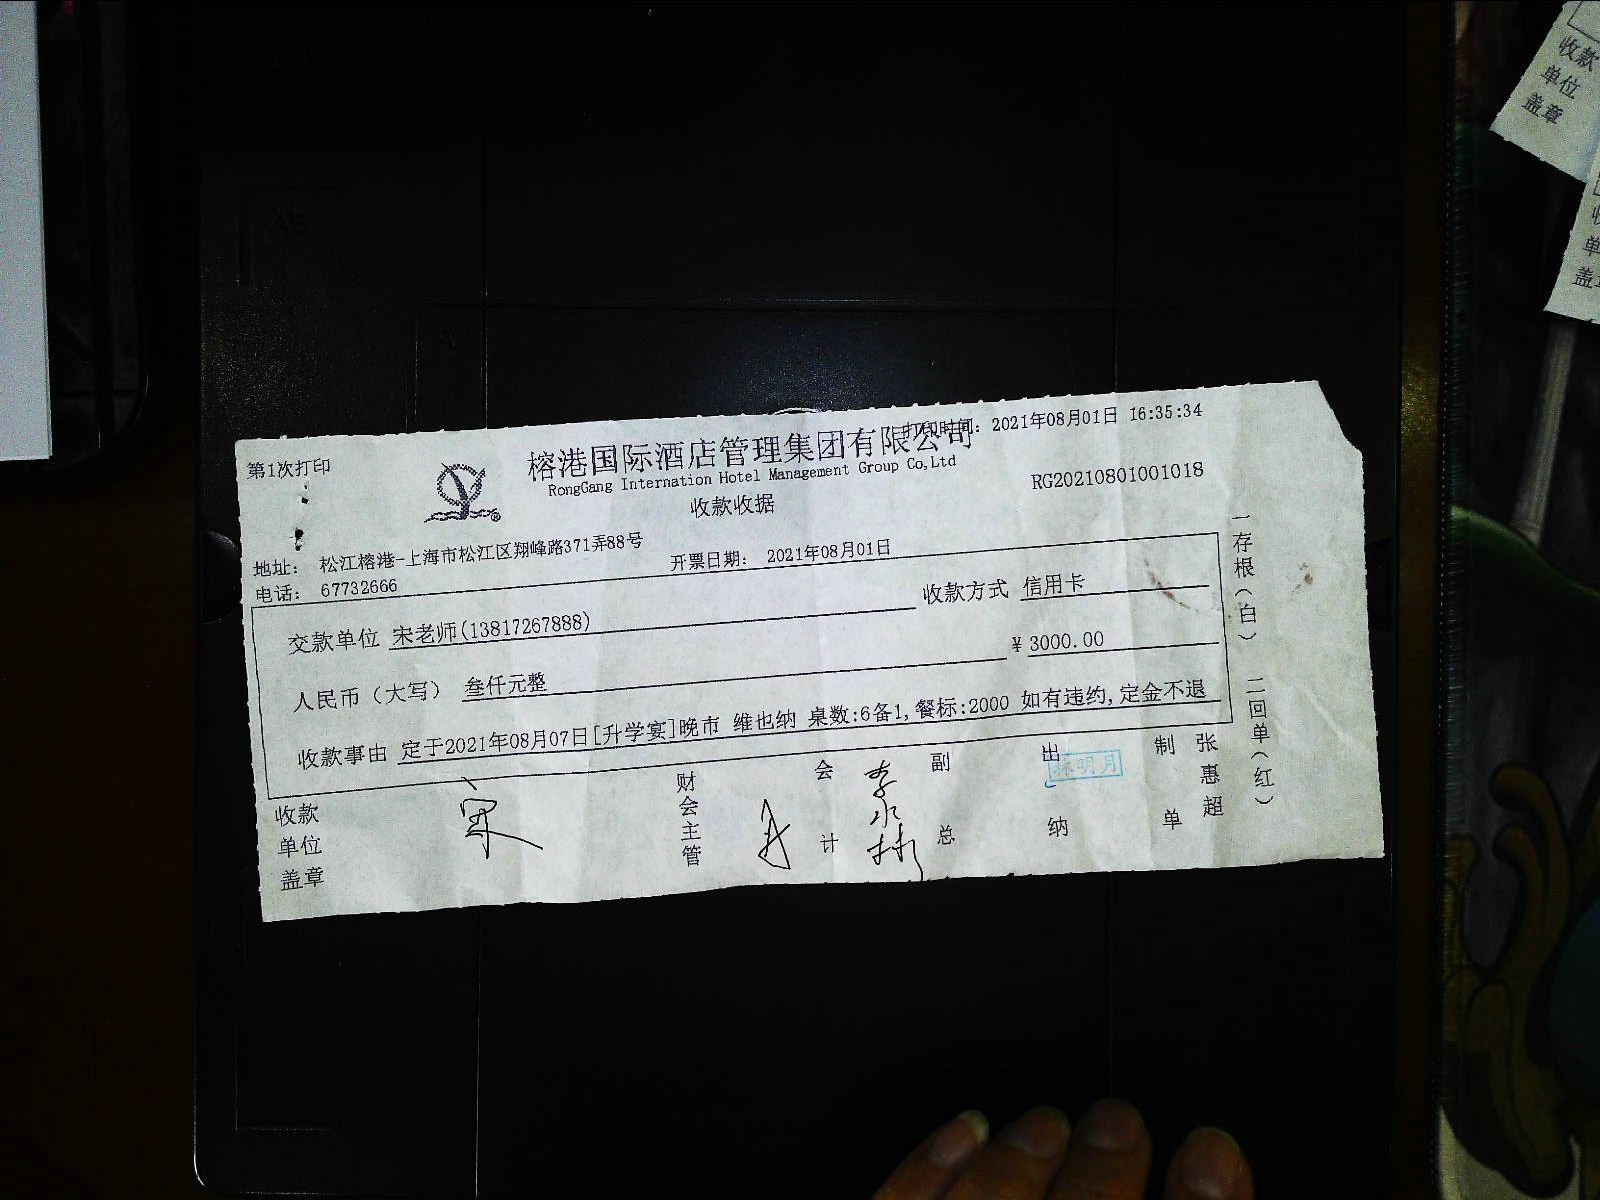 第1次打印
榕港国际酒店管理集团有限公司
打印时间: 2021年08月01日 16:35:34
RongGang Internation Hotel Management Group Co,Ltd
收款收据
RG20210801001018
地址: 松江榕港-上海市松江区翔峰路371弄88号
开票日期: 2021年08月01日
电话: 67732666
交款单位 宋老师(13817267888)
收款方式 信用卡
人民币（大写） 叁仟元整
¥ 3000.00
收款事由 定于2021年08月07日[升学宴]晚市 维也纳 桌数:6备1,餐标:2000 如有违约,定金不退
收款单位盖章
宋
财会主管
会计
李水彬
副总
出纳
林明月
制单
张惠超
一存根(白) 二回单(红)
收款
单位
盖章